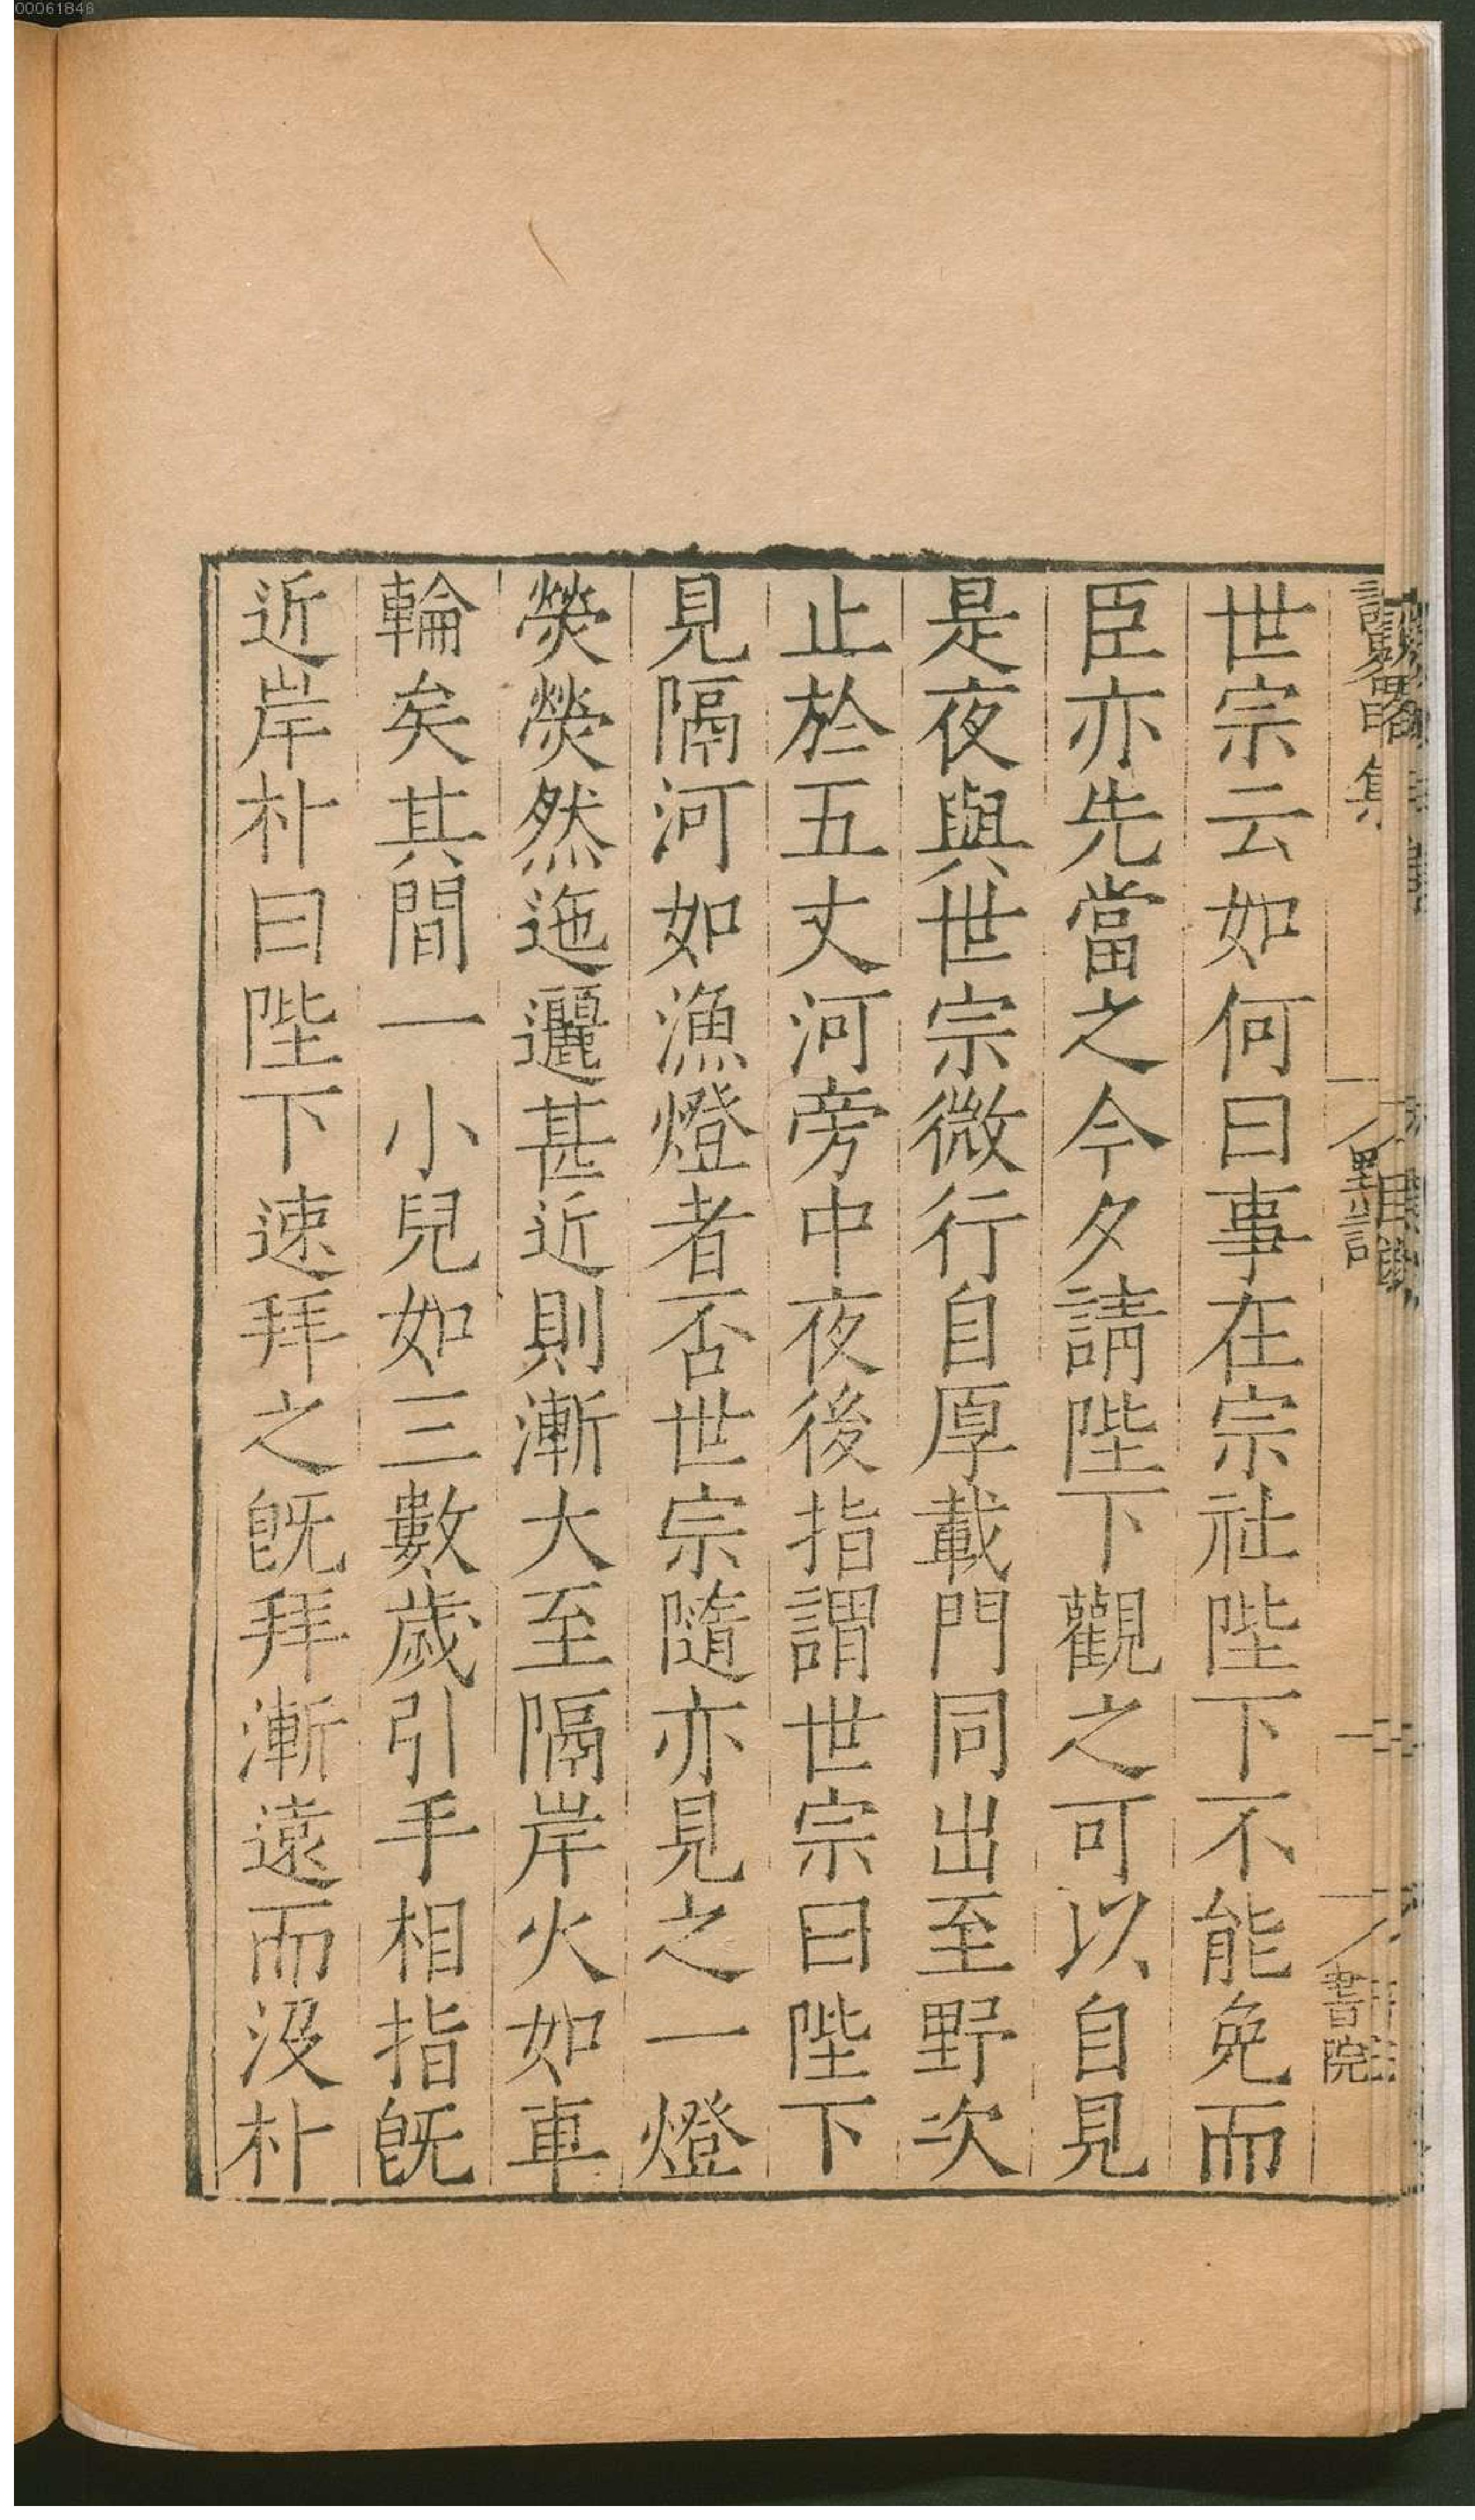 00061846
世宗云如何曰事在宗社陛下不能免而
臣亦先當之今夕請陛下觀之可以自見
是夜與世宗微行自厚載門同出至野次
止於五丈河旁中夜後指謂世宗曰陛下
見隔河如漁燈者否世宗隨亦見之一燈
熒熒然迤邐甚近則漸大至隔岸火如車
輪矣其間一小兒如三數歲引手相指既
近岸朴曰陛下速拜之既拜漸遠而没朴
書院